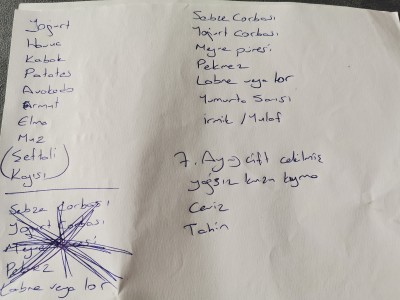 Yogurt
Havuç
Kabak
Patates
Avokado
Armut
Elma
Muz
(Şeftali
Kayısı)
Sebze Çorbası
Yogurt Çorbası
Meyve püresi
Pekmez
Labne veya lor
Sebze Çorbası
Yogurt Çorbası
Meyve püresi
Pekmez
Labne veya lor
Yumurta Sarısı
İrmik / Yulaf
7. Ay → çift çekilmiş
yağsız kuzu kıyma
Ceviz
Tahin